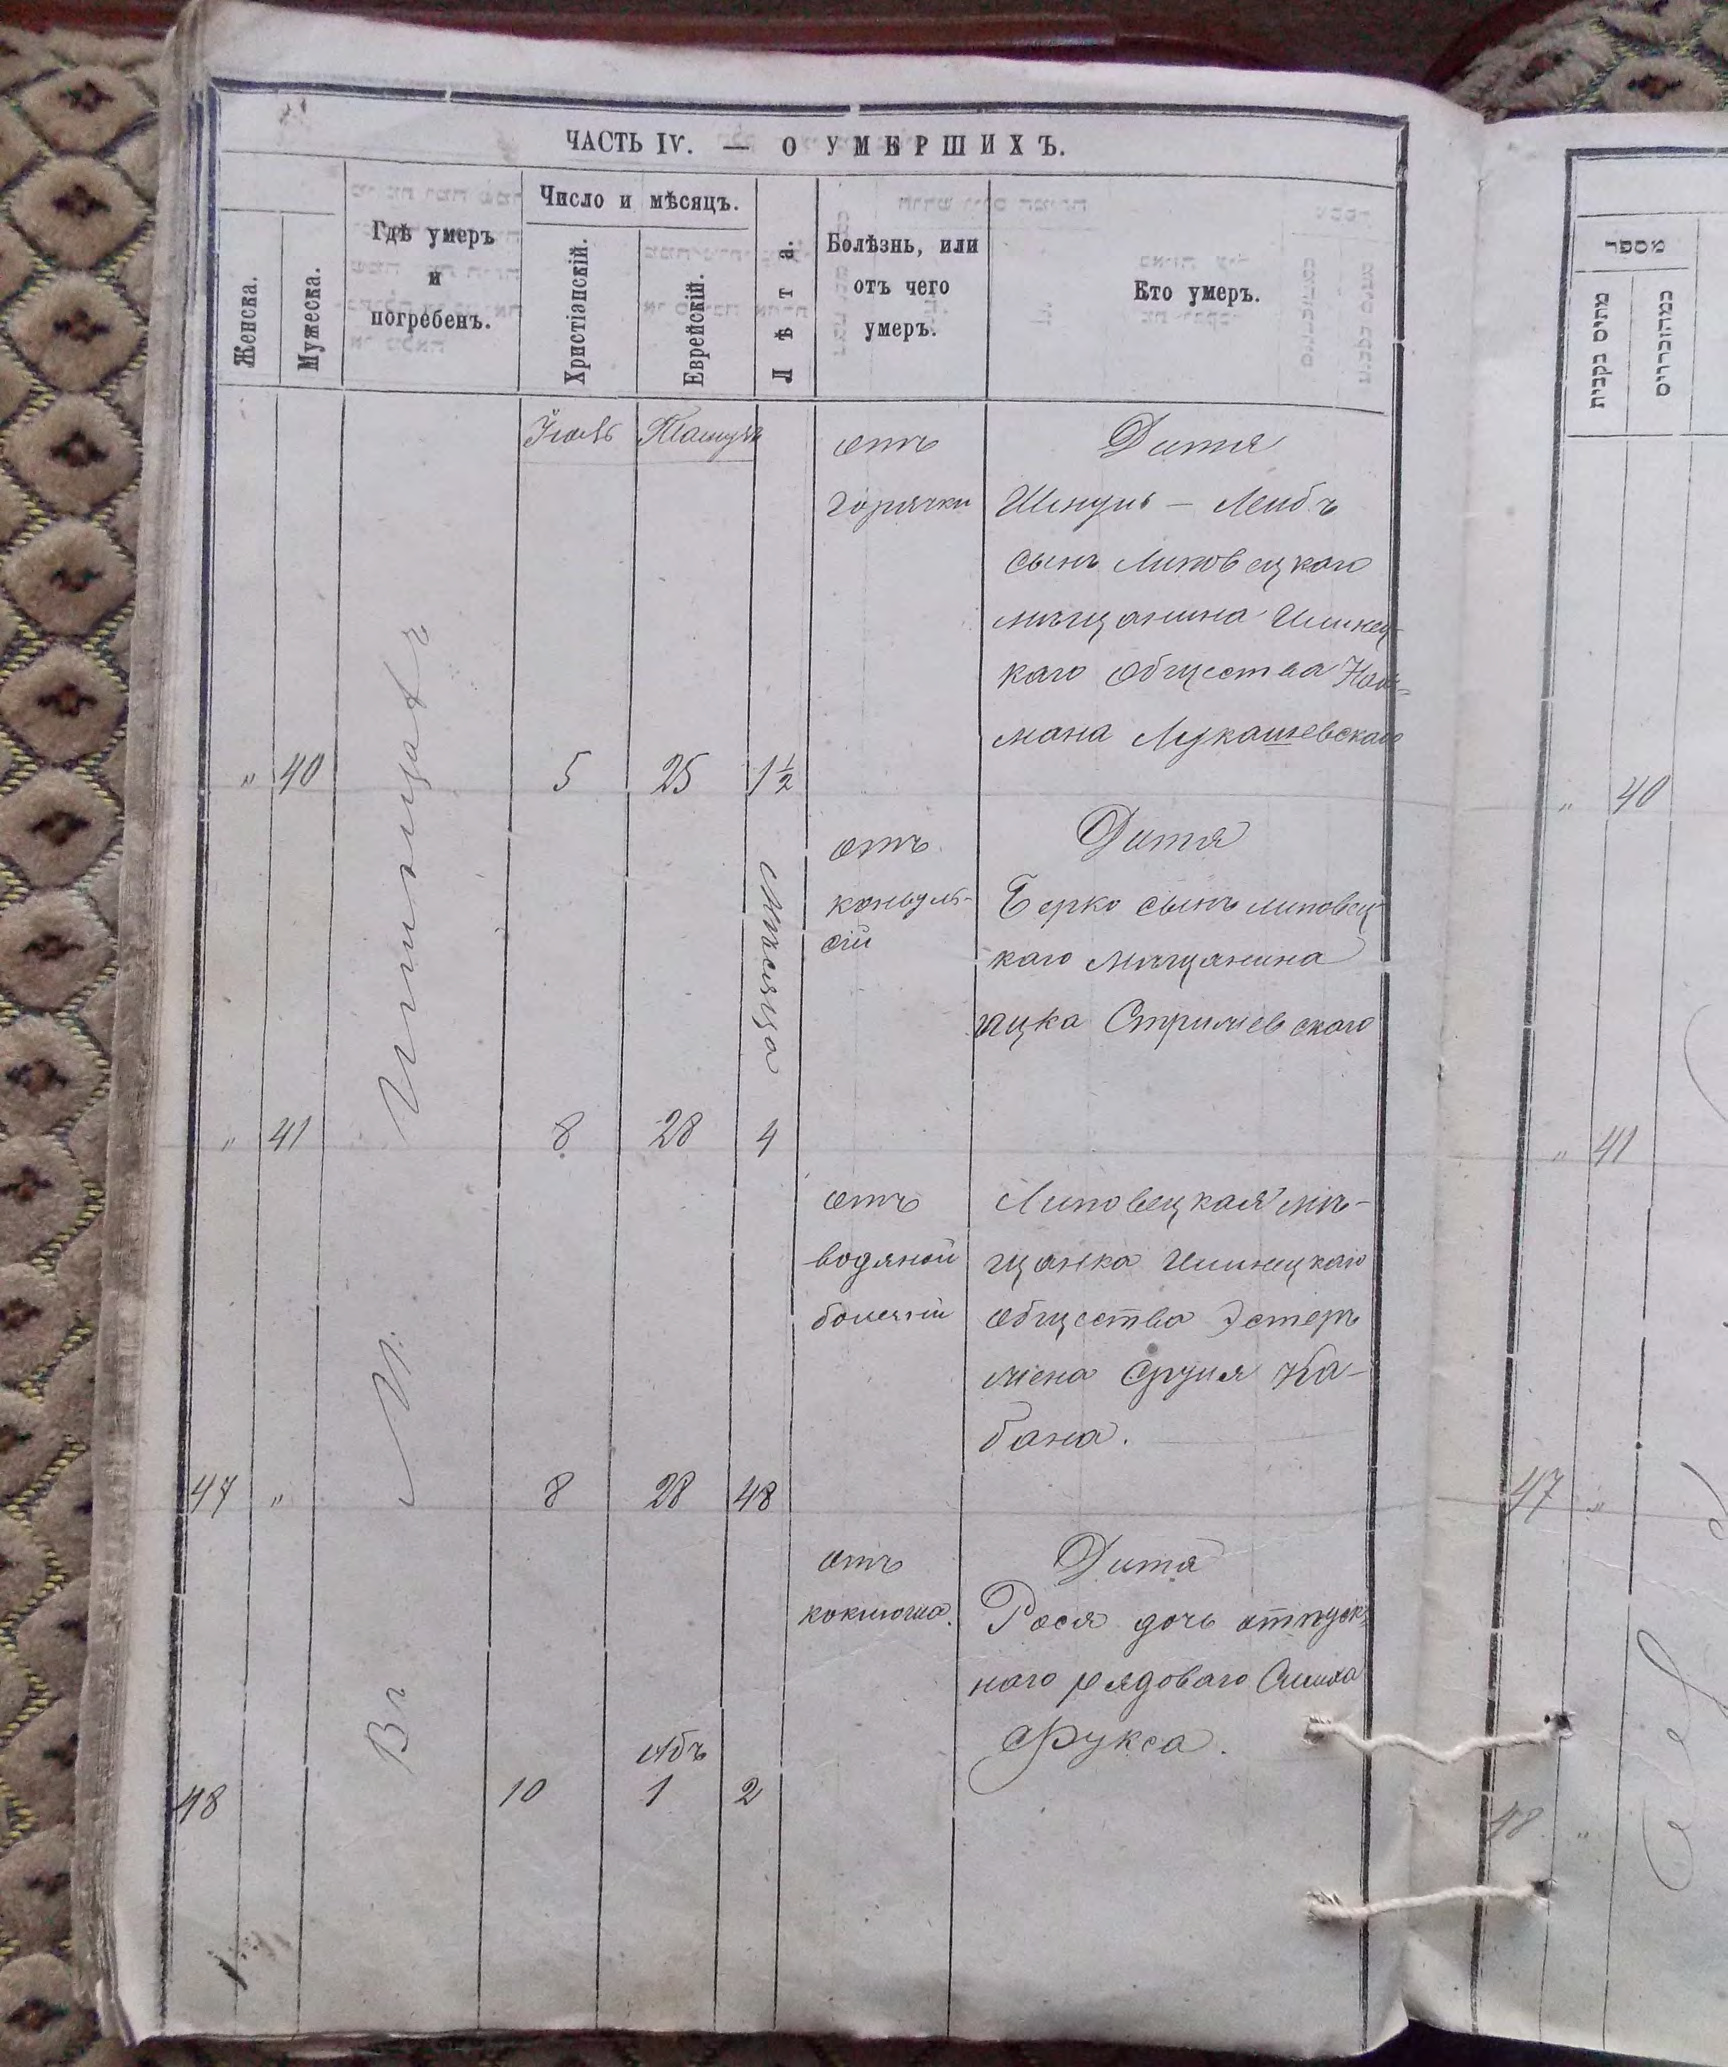 ЧАСТЬ IV. — О УМЕРШИХЪ.
Женска.
Мужеска.
Гдѣ умеръ
и
погребенъ.
Число и мѣсяцъ.
Христіанскій.
Еврейскій.
Лѣта.
Болѣзнь, или
отъ чего
умеръ.
Кто умеръ.
Въ М. Ильинцахъ
Іюль
Тамузъ
отъ
горячки
Дитя
Шмуль - Лейбъ
сынъ Липовецкаго
мѣщанина Илинец-
каго общества Нах-
мана Лукашевскаго
" 40 5 25 1½
отъ
конвуль-
сій
Дитя
Берко сынъ липовец-
каго мѣщанина
Ицка Стрижевскаго
Мѣсяца
" 41 8 28 4
отъ
водяной
болезни
Липовецкая мѣ-
щанка Илинецкаго
общества Эстеръ
жена Сруля Ка-
бана.
47 " 8 28 48
отъ
коклюша.
Дитя
Рося дочь отпуск-
наго рядоваго
Фукса.
Абъ
48 10 1 2
מספר
מתים נקבות
במהזכרים
" 40
" 41
47 "
48 "